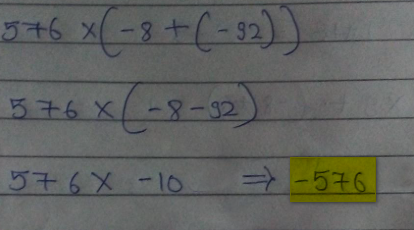 576 × (-8 + (-92))
576 × (-8 - 92)
576 × -10 ⇒ -576